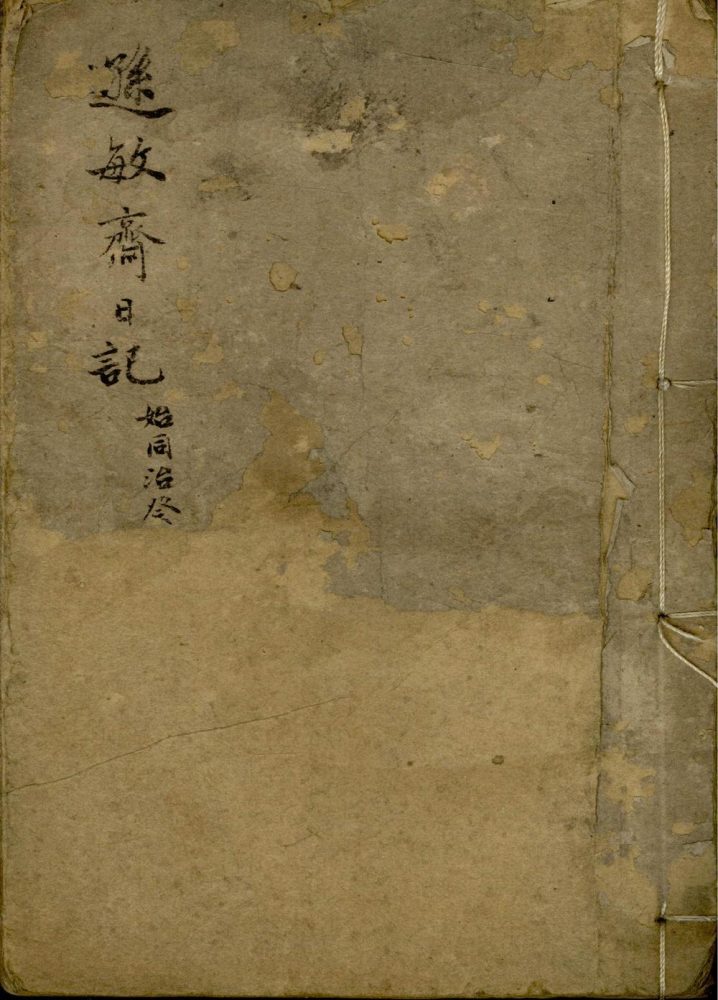 遜敏齋日記
始同治癸